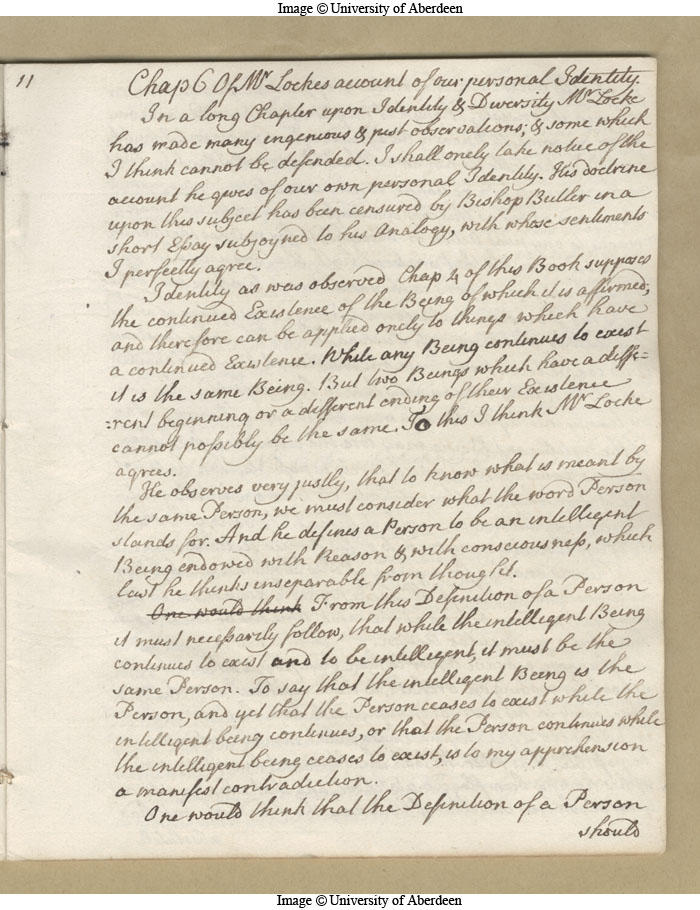 Image © University of Aberdeen
11
Chap 6 Of Mr Lockes account of our personal Identity.
In a long Chapter upon Identity & Diversity Mr Locke
has made many ingenious & just observations; & some which
I think cannot be defended. I shall onely take notice of the
account he gives of our own personal Identity. His doctrine
upon this subject has been censured by Bishop Butler in a
short Essay subjoyned to his Analogy, with whose sentiments
I perfectly agree.
Identity as was observed Chap 4 of this Book supposes
the continued Existence of the Being of which it is affirmed,
and therefore can be applied onely to things which have
a continued Existence. While any Being continues to exist
it is the same Being. But two Beings which have a diffe=
=rent beginning or a different ending of their Existence
cannot possibly be the same. To this I think Mr Locke
agrees.
He observes very justly, that to know what is meant by
the same Person, we must consider what the word Person
stands for. And he defines a Person to be an intelligent
Being endowed with Reason & with consciousness, which
last he thinks inseparable from thought.
One would think From this Definition of a Person
it must necessarily follow, that while the intelligent Being
continues to exist and to be intelligent, it must be the
same Person. To say that the intelligent Being is the
Person, and yet that the Person ceases to exist while the
intelligent being continues, or that the Person continues while
the intelligent being ceases to exist, is to my apprehension
a manifest contradiction.
One would think that the Definition of a Person
should
Image © University of Aberdeen